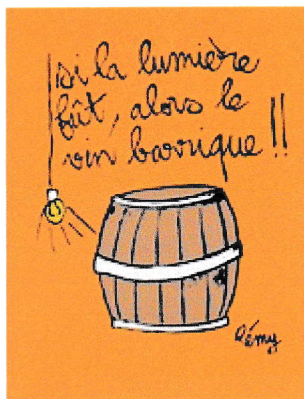 si la lumière
fût, alors le
vin barrique !!
Rémy